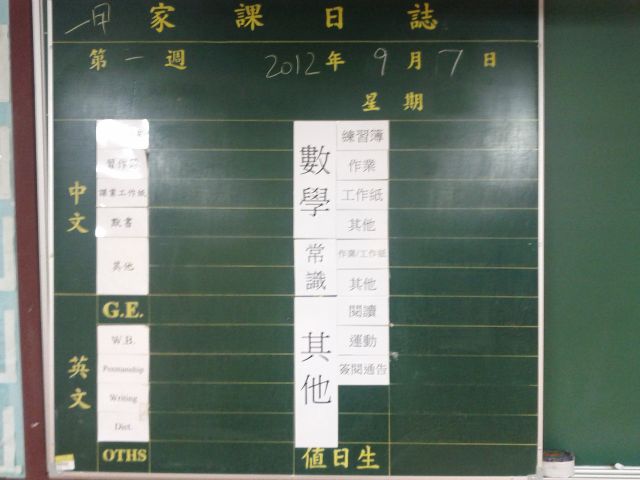 一甲 家課日誌
第一週 2012年9月7日
星期
中文
習作簿
課業工作紙
默書
其他
英文
G.E.
W.B.
Penmanship
Writing
Dict.
OTHS
數學
練習簿
作業
工作紙
其他
常識
作業/工作紙
其他
其他
閱讀
運動
簽閱通告
值日生